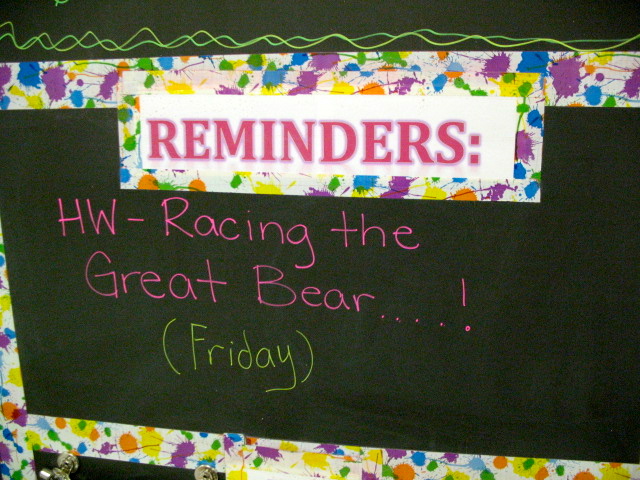 REMINDERS:
HW - Racing the
Great Bear.....!
(Friday)